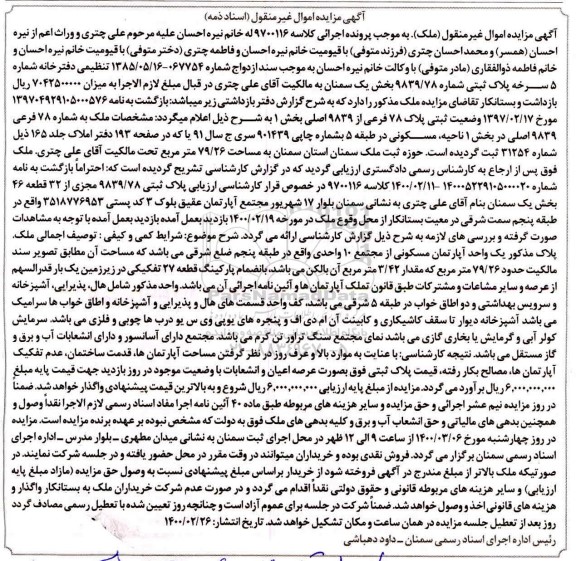 آگهی مزایده اموال غیر منقول (اسناد ذمه)
آگهی مزایده اموال غیر منقول (ملک)، به موجب پرونده اجرائی کلاسه ۹۷۰۰۱۱۶ له خانم نیره احسان علیه مرحوم علی چتری و وراث اعم از نیره
احسان (همسر) و محمد احسان چتری (فرزند متوفی) با قیومیت خانم نیره احسان و فاطمه چتری (دختر متوفی) با قیومیت خانم نیره احسان و
خانم فاطمه ذوالفقاری (مادر متوفی) با وکالت خانم نیره احسان به موجب سند ازدواج شماره ۰۶۷۷۵۴-۱۳۸۵/۰۵/۱۶ تنظیمی دفترخانه شماره
۵ سرخه پلاک ثبتی شماره ۹۸۳۹/۷۸ بخش یک سمنان به مالکیت آقای علی چتری در قبال مبلغ لازم الاجرا به میزان ۷۰۴۲۵۰۰۰۰۰ ریال
بازداشت و بستانکار تقاضای مزایده ملک مذکور را دارد که به شرح گزارش دفتر بازداشتی زیر میباشد: بازگشت به نامه ۱۳۹۷۰۴۹۲۹۱۰۵۰۰۰۵۷۶
مورخ ۱۳۹۷/۰۲/۱۷ وضعیت ثبتی پلاک ۷۸ فرعی از ۹۸۳۹ اصلی بخش ۱ به شرح ذیل اعلام میگردد: مشخصات ملک به شماره ۷۸ فرعی
۹۸۳۹ اصلی در بخش ۱ ناحیه، مسکونی در طبقه ۵ بشماره چاپی ۹۰۱۴۳۹ سری ج سال ۹۱ با که در صفحه ۱۹۳ دفتر املاک جلد ۱۶۵ ذیل
شماره ۳۱۲۵۴ ثبت گردیده است. حوزه ثبت ملک سمنان استان سمنان به مساحت ۷۹/۲۶ متر مربع تحت مالکیت آقای علی چتری. ملک
فوق پس از ارجاع به کارشناس رسمی دادگستری ارزیابی گردید که در گزارش کارشناسی تشریح گردیده است که: احتراماً بازگشت به نامه
شماره ۱۴۰۰۰۵۲۲۹۱۰۵۰۰۰۰۲۰-۱۴۰۰/۰۲/۱۱ کلاسه ۹۷۰۰۱۱۶ در خصوص قرار کارشناسی ارزیابی پلاک ثبتی ۹۸۳۹/۷۸ مجزی از ۳۲ قطعه ۴۶
بخش یک سمنان بنام آقای علی چتری به نشانی سمنان بلوار ۱۷ شهریور مجتمع آپارتمان عقیق بلوک ۳ کد پستی ۳۵۱۸۷۷۶۹۵۳ واقع در
طبقه پنجم سمت شرقی در معیت بستانکار از محل وقوع ملک در مورخه ۱۴۰۰/۰۲/۱۹ بازدید بعمل آمده بازدید بعمل آمده با توجه به مشاهدات
صورت گرفته و بررسی های لازمه به شرح ذیل گزارش کارشناسی ارائه می گردد. شرح موضوع: شرایط کمی و کیفی: توصیف اجمالی ملک.
پلاک مذکور یک واحد آپارتمان مسکونی از مجتمع ۱۰ واحدی واقع در طبقه پنجم ضلع شرقی می باشد که مساحت آن مطابق تصویر سند
مالکیت حدود ۷۹/۲۶ متر مربع که مقدار ۳/۴۲ متر مربع آن بالکن می باشد، بانضمام پارکینگ قطعه ۲۷ تفکیکی در زیرزمین یک بار قدرالسهم
از عرصه و سایر مشاعات و مشترکات طبق قانون تملک آپارتمان ها و آئین نامه اجرائی آن می باشد. واحد مذکور شامل هال، پذیرایی، آشپزخانه
و سرویس بهداشتی و دو اطاق خواب در طبقه ۵ شرقی می باشد، کف واحد قسمت های هال و پذیرایی و آشپزخانه و اطاق خواب ها سرامیک
می باشد آشپزخانه دیوار تا سقف کاشیکاری و کابینت آن ام دی اف و پنجره های یوپی وی س یو درب ها چوبی و فلزی می باشد. سرمایش
کولر آبی و گرمایش با بخاری گازی می باشد نمای مجتمع سنگ تراورتن کرم می باشد. مجتمع دارای آسانسور و دارای انشعابات آب و برق و
گاز مستقل می باشد. نتیجه کارشناسی: با عنایت به موارد بالا و عرف روز در نظر گرفتن مساحت آپارتمان ها، قدمت ساختمان، عدم تفکیک
آپارتمان ها، مصالح بکار رفته، قیمت پلاک ثبتی فوق بصورت عرصه اعیان و انشعابات با وضعیت موجود در روز بازدید جهت قیمت پایه مبلغ
۶,۰۰۰,۰۰۰,۰۰۰ ریال برآورد می گردد. مزایده از مبلغ پایه ارزیابی ۶,۰۰۰,۰۰۰,۰۰۰ ریال شروع و به بالاترین قیمت پیشنهادی واگذار خواهد شد. ضمناً
در روز مزایده نیم عشر اجرائی و حق مزایده و سایر هزینه های مربوطه طبق ماده ۴۰ آئین نامه اجرا مفاد اسناد رسمی لازم الاجرا نقداً وصول و
همچنین بدهی های مالیاتی و حق انشعاب آب و برق و کلیه بدهی های ملک فوق به دولت که مشخص نبوده بر عهده برنده مزایده است. مزایده
در روز چهارشنبه مورخ ۱۴۰۰/۰۳/۰۶ از ساعت ۹ الی ۱۲ ظهر در محل اجرای ثبت سمنان به نشانی میدان مطهری ـ بلوار مدرس ـ اداره اجرای
اسناد رسمی سمنان برگزار می گردد. فروش نقدی بوده و خریداران میتوانند در وقت مقرر در محل حضور یافته و در جلسه شرکت نمایند. در
صورتیکه ملک بالاتر از مبلغ مندرج در آگهی فروخته شود از خریدار براساس مبلغ پیشنهادی نسبت به وصول حق مزایده (مازاد مبلغ پایه
ارزیابی) و سایر هزینه های مربوطه قانونی و حقوق دولتی نقداً اقدام می گردد و در صورت عدم شرکت خریداران ملک به بستانکار واگذار و
هزینه های قانونی اخذ و وصول خواهد شد. ضمناً شرکت در جلسه برای عموم آزاد است و چنانچه روز تعیین شده با تعطیل رسمی مصادف گردد
روز بعد از تعطیل جلسه مزایده در همان ساعت و مکان تشکیل خواهد شد. تاریخ انتشار: ۱۴۰۰/۰۲/۲۶
رئیس اداره اجرای اسناد رسمی سمنان ـ داود دهباشی